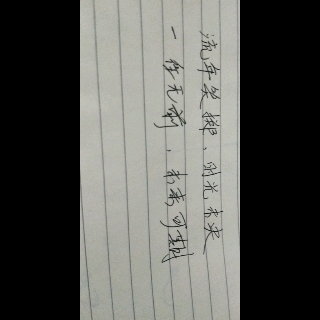 流年笑掷，时光未央
一往无前，未来可期